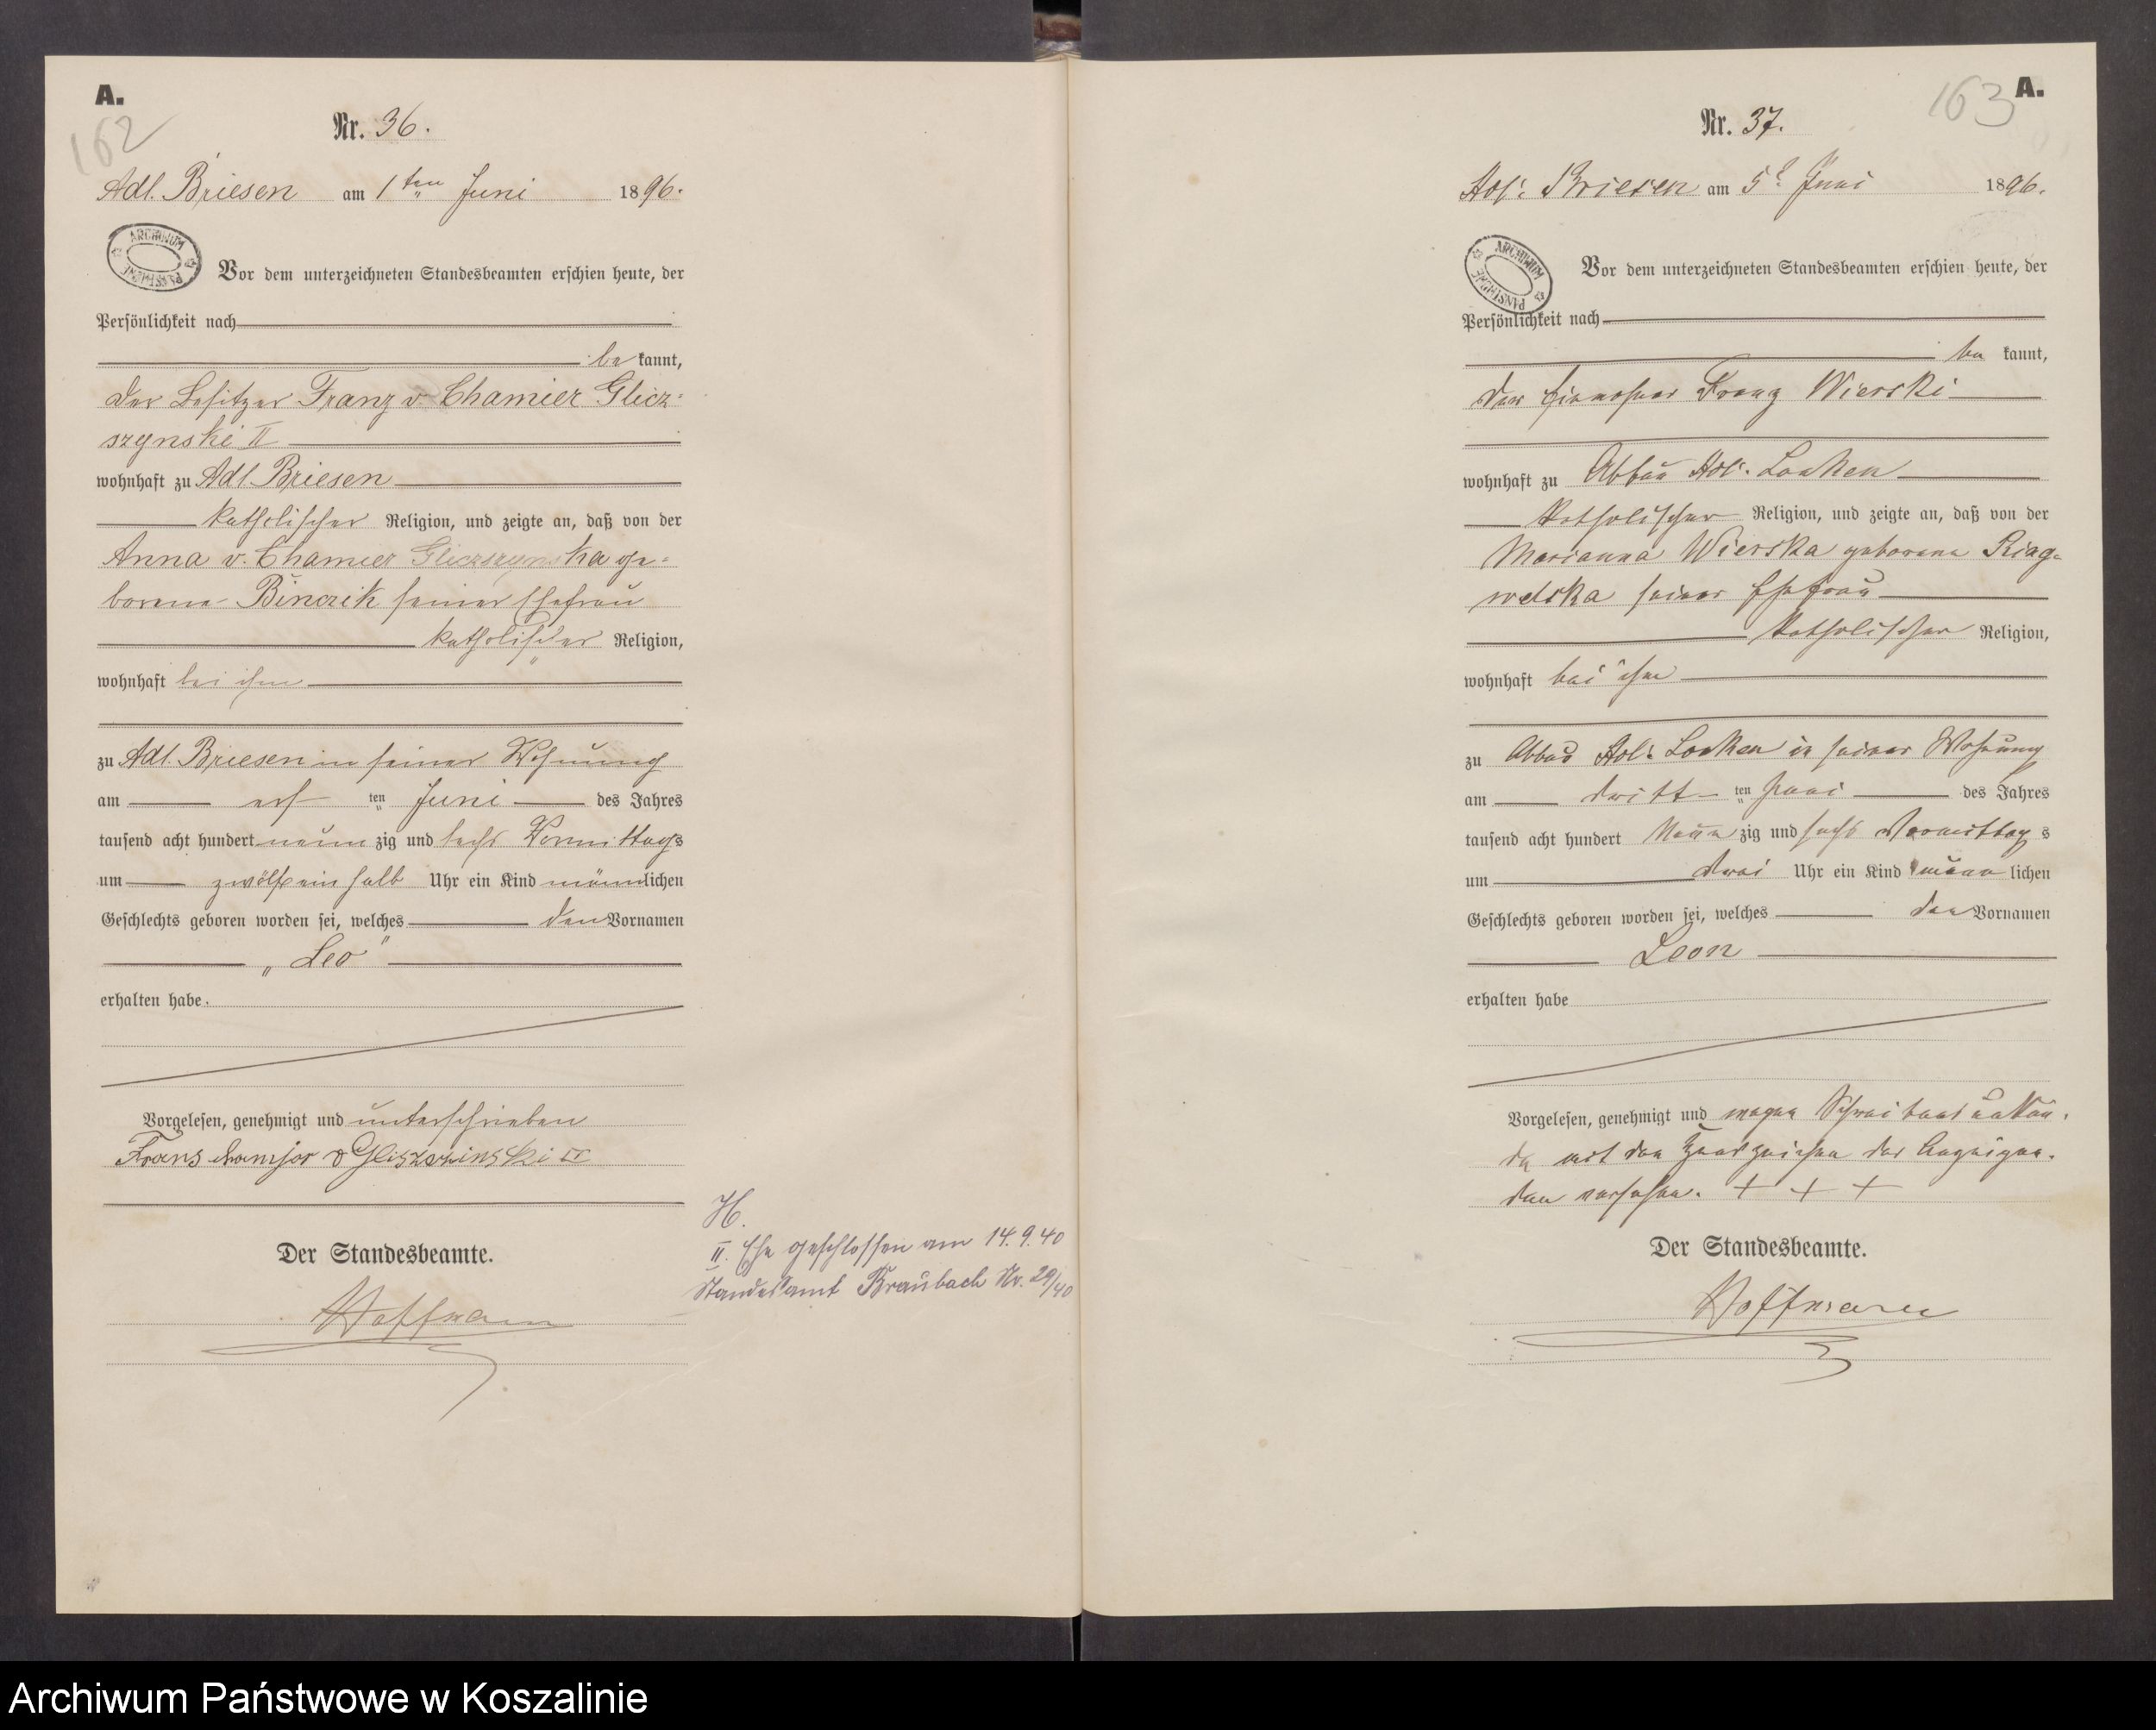 A.
162
Nr. 36.
Adl. Briesen am 1ten Juni 1896.
ARCHIWUM PAŃSTWOWE
Vor dem unterzeichneten Standesbeamten erschien heute, der
Persönlichkeit nach
be kannt,
der Besitzer Franz v. Chamier Glicz-
szynski II
wohnhaft zu Adl. Briesen
katholischer Religion, und zeigte an, daß von der
Anna v. Chamier Gliczszynska ge-
borene Binczik seiner Ehefrau
katholischer Religion,
wohnhaft bei ihm
zu Adl. Briesen in seiner Wohnung
am erst ten Juni des Jahres
tausend acht hundert neun zig und sechs Vormittags
um zwölf ein halb Uhr ein Kind männlichen
Geschlechts geboren worden sei, welches den Vornamen
„Leo"
erhalten habe.
Vorgelesen, genehmigt und unterschrieben
Frans v Gliszczinski II
Der Standesbeamte.
Hoffmann
H.
II. Ehe geschlossen am 14.9.40
Standesamt Braubach Nr. 29/40
A.
163
Nr. 37.
Adl. Briesen am 5t Juni 1896.
ARCHIWUM PAŃSTWOWE
Vor dem unterzeichneten Standesbeamten erschien heute, der
Persönlichkeit nach
be kannt,
der Franz Wierski
wohnhaft zu Abbau Adl. Lonken
katholischer Religion, und zeigte an, daß von der
Marianna Wierska geborene
seiner Ehefrau
katholischer Religion,
wohnhaft bei ihm
zu Abbau Adl. Lonken in seiner Wohnung
am dritt ten Juni des Jahres
tausend acht hundert Neun zig und sechs Vormittag s
um drei Uhr ein Kind männ lichen
Geschlechts geboren worden sei, welches den Vornamen
Leon
erhalten habe
Vorgelesen, genehmigt und wegen Schreibensunkun-
de mit den Handzeichen des Anzeigen-
den versehen. + + +
Der Standesbeamte.
Hoffmann
Archiwum Państwowe w Koszalinie